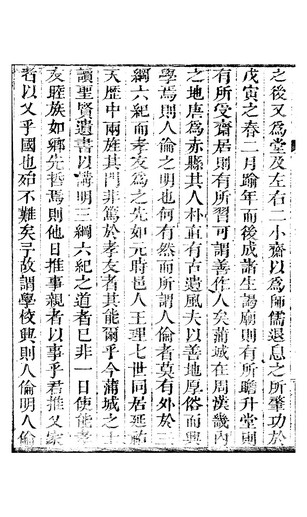 之後又為堂及左右二小齋以為師儒退息之所肇功於
戊寅之春二月踰年而後成諸生謁廟則有所瞻升堂則
有所受齋居則有所習可謂善作人矣蒲城在周漢畿內
之地唐為赤縣其人朴直有古遺風夫以善地厚俗而興
學焉則人倫之明也何有然而所謂人倫者莫有外於三
綱六紀而孝友為之先如元時邑人王理七世同居延祐
天歷中兩旌其門非篤於孝友者其能爾乎今蒲城之士
讀聖賢遺書以講明三綱六紀之道者已非一日使能孝
友睦族如鄉先哲焉則他日推事親者以事乎君推父家
者以父乎國也殆不難矣予故謂學校興則人倫明人倫